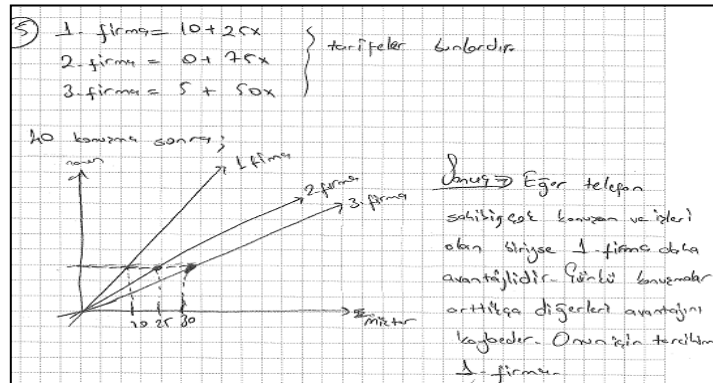 5
1. firma = 10 + 25x
2. firma = 0 + 75x
3. firma = 5 + 50x
tarifeler bunlardır.
40 konuşma sonra;
1. firma
2. firma
3. firma
20 25 30
Miktar
Sonuç ⇒ Eğer telefon
sahibi çok konuşan ve işleri
olan biriyse 1. firma daha
avantajlıdır. Çünkü konuşmalar
arttıkça diğerleri avantajını
kaybeder. Onun için tercihim
1. firma.